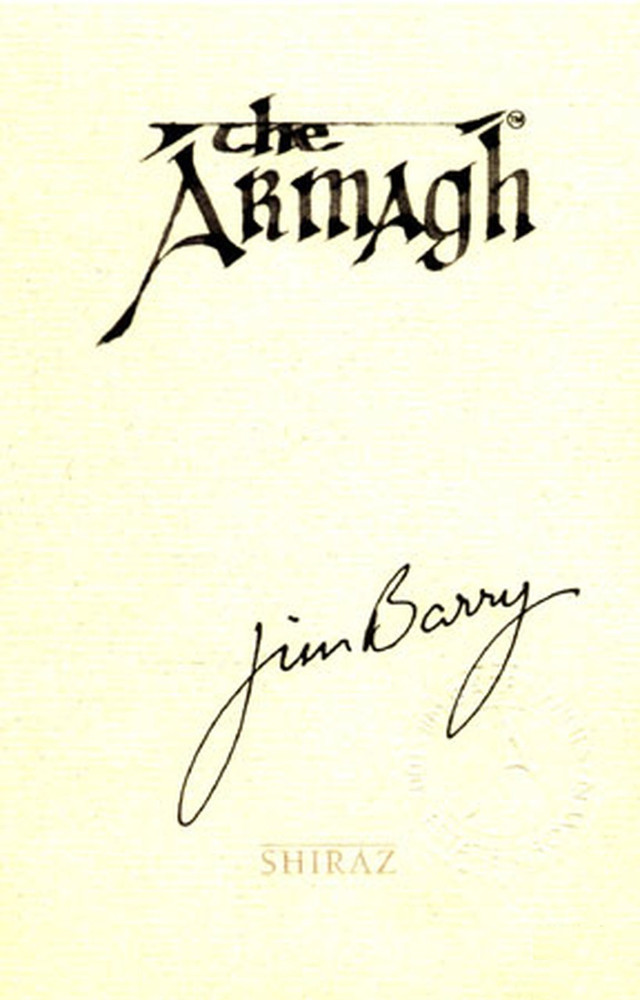 the
Armagh™
Jim Barry
SHIRAZ